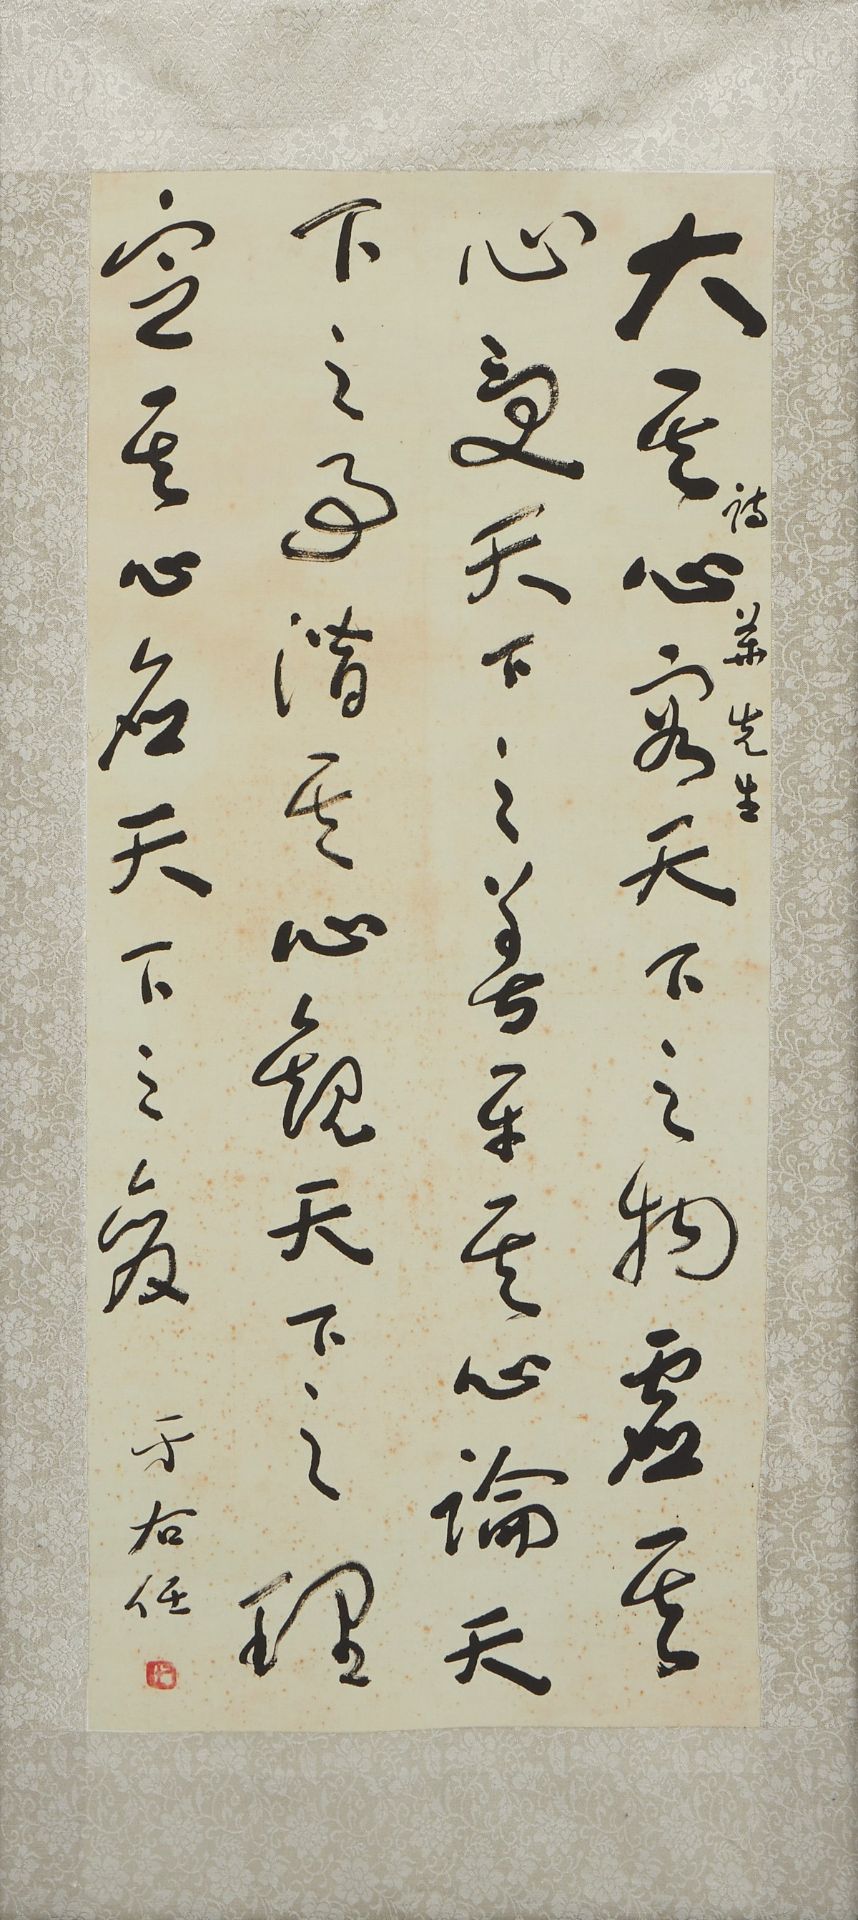 大其心容天下之物虛其
心受天下之善平其心論天
下之事潛其心觀天下之理
定其心應天下之變
詩華先生
于右任